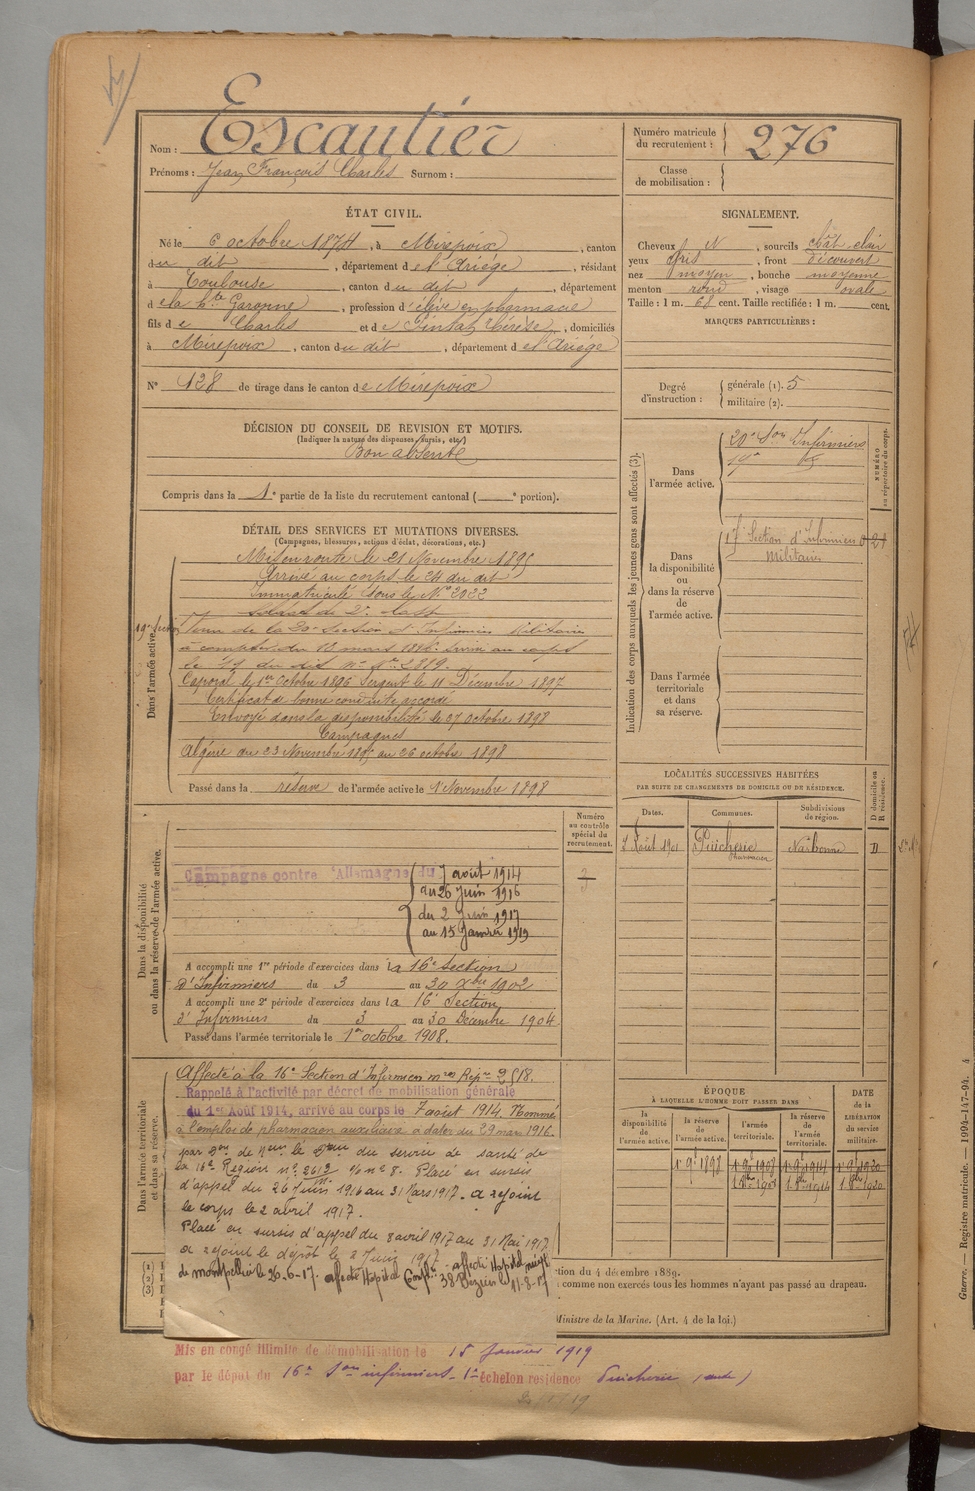 Nom : Escautier
Prénoms : Jean François Charles Surnom :
Numéro matricule du recrutement : 276
Classe de mobilisation :
ÉTAT CIVIL.
Né le 6 octobre 1874, à Mirepoix, canton
du dit, département de l'Ariége, résidant
à Toulouse, canton du dit, département
de la hte Garonne, profession d'élève en pharmacie
fils de Charles et de Thérèse, domiciliés
à Mirepoix, canton du dit, département de l'Ariége
N° 128 de tirage dans le canton de Mirepoix
SIGNALEMENT.
Cheveux N, sourcils chât clair
yeux gris, front découvert
nez moyen, bouche moyenne
menton rond, visage ovale
Taille : 1 m. 68 cent. Taille rectifiée : 1 m. cent.
MARQUES PARTICULIÈRES :
Degré d'instruction : générale (1). 5
militaire (2).
DÉCISION DU CONSEIL DE REVISION ET MOTIFS.
(Indiquer la nature des dispenses, sursis, etc.)
Bon absent
Compris dans la 1e partie de la liste du recrutement cantonal ( e portion).
DÉTAIL DES SERVICES ET MUTATIONS DIVERSES.
(Campagnes, blessures, actions d'éclat, décorations, etc.)
Dans l'armée active.
Mis en route le 21 Novembre 1895
Arrivé au corps le 24 du dit
Immatriculé sous le N° 2022
soldat de 2e classe
de la 20e section d'Infirmiers Militaires
à compter du mars 1896. au corps
le 19 du dit n° 2889.
Caporal le 1er Octobre 1896 Sergent le 11 Décembre 1897
Certificat de bonne conduite accordé
Envoyé dans la disponibilité le 27 octobre 1898
Campagnes
Algérie du 23 Novembre 1895 au 26 octobre 1898
Passé dans la réserve de l'armée active le 1 Novembre 1898
Indication des corps auxquels les jeunes gens sont affectés (3).
NUMÉRO au répertoire du corps.
Dans l'armée active.
20e Son Infirmiers
19e
Dans la disponibilité ou dans la réserve de l'armée active.
17 Section d'Infirmiers
Militaires
Dans l'armée territoriale et dans sa réserve.
LOCALITÉS SUCCESSIVES HABITÉES
PAR SUITE DE CHANGEMENTS DE DOMICILE OU DE RÉSIDENCE.
Dates. Communes. Subdivisions de région. D domicile ou R résidence.
Août 1901 Puicheric pharmacien Narbonne D
Dans la disponibilité ou dans la réserve de l'armée active.
Numéro au contrôle spécial du recrutement.
3
Campagne contre l'Allemagne du 7 août 1914
du 26 Juin 1916
du 2 Juin 1917
au 15 Janvier 1919
A accompli une 1re période d'exercices dans la 16e section
d'Infirmiers du 3 au 30 Xbre 1902
A accompli une 2e période d'exercices dans la 16 Section
d'Infirmiers du 3 au 30 Décembre 1904
Passé dans l'armée territoriale le 1er octobre 1908.
Dans l'armée territoriale et dans sa réserve.
Affecté à la 16e Section d'Infirmiers mres Repre 2518.
Rappelé à l'activité par décret de mobilisation générale
du 1er Août 1914, arrivé au corps le 7 août 1914. Nommé
à l'emploi de pharmacien auxiliaire à dater du 29 mars 1916.
par de le du service de santé de
la 16e Région n° 2612 Placé en sursis
d'appel du 26 Juin 1916 au 31 Mars 1917. a rejoint
le corps le 2 avril 1917.
Placé en sursis d'appel du 8 avril 1917 au 31 Mai 1917
a rejoint le dépôt le 2 Juin 1917. affecté Hôpital
de Montpellier le 20-6-17. affecté Hôpital Complre 38 Béziers le 11-8-17
ÉPOQUE
À LAQUELLE L'HOMME DOIT PASSER DANS
la disponibilité de l'armée active. la réserve de l'armée active. l'armée territoriale. la réserve de l'armée territoriale.
DATE de la LIBÉRATION du service militaire.
1 9e 1898 1 9e 1908 1 9e 1914 1 9e 1920
(1)
(2)
(3)
tion du 4 décembre 1889.
comme non exercés tous les hommes n'ayant pas passé au drapeau.
Ministre de la Marine. (Art. 4 de la loi.)
Mis en congé illimité de démobilisation le 15 Janvier 1919
par le dépôt du 16e Son infirmiers - 1er échelon residence Puicheric (aude)
Guerre. — Registre matricule. — 1904-147-94. 4